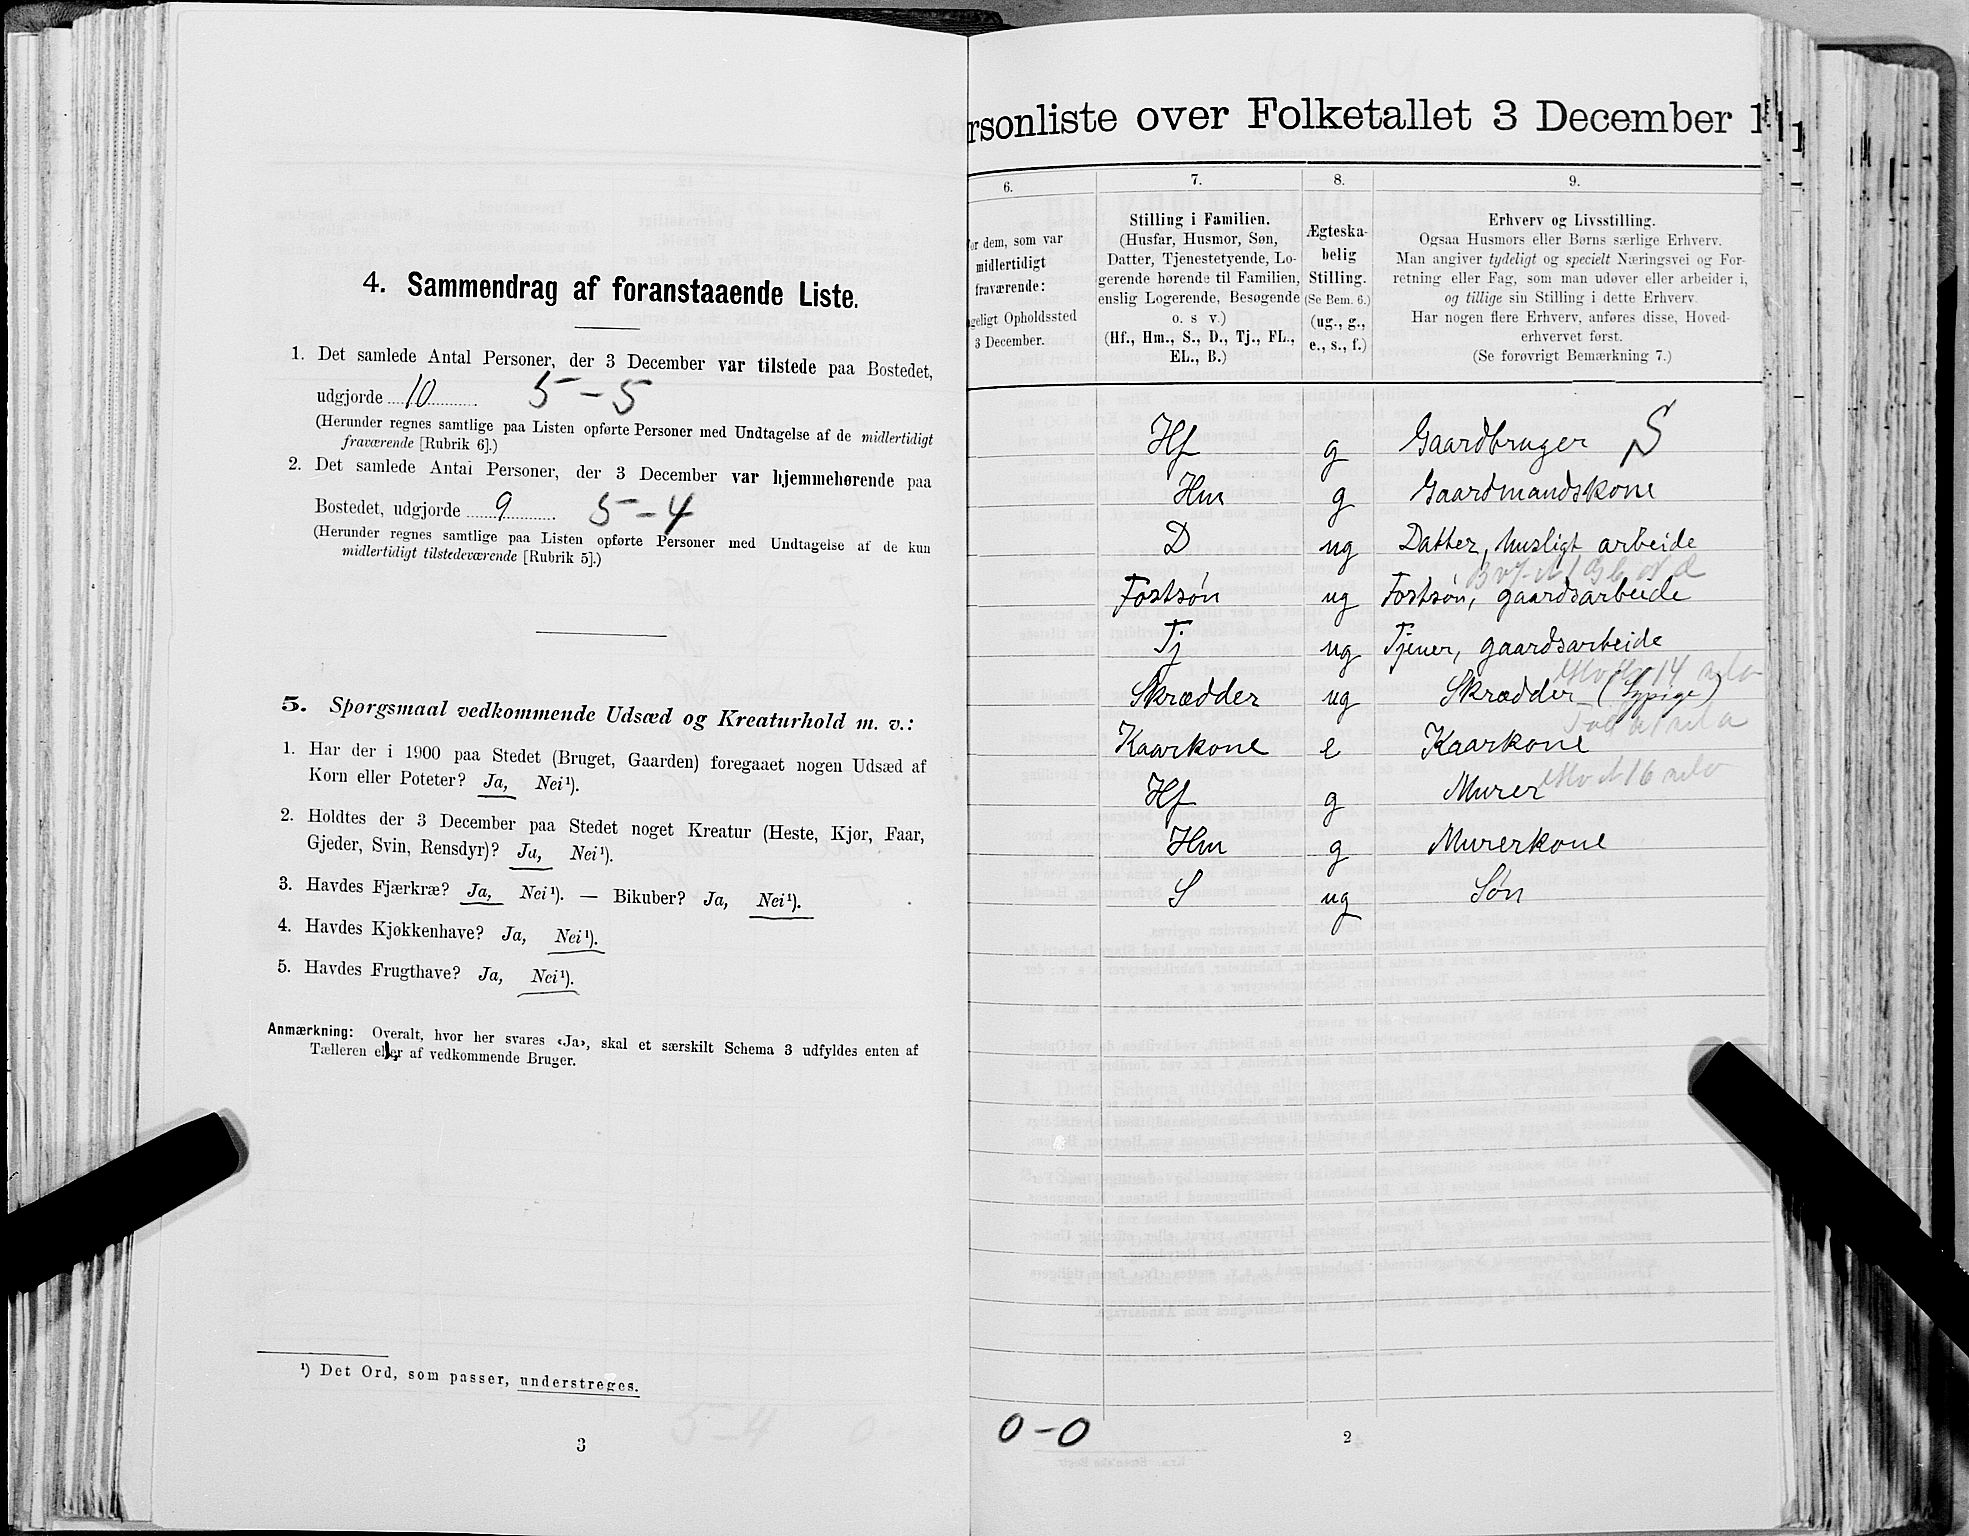 4. Sammendrag af foranstaaende Liste.
1. Det samlede Antal Personer, der 3 December var tilstede paa Bostedet,
udgjorde 10 5-5
(Herunder regnes samtlige paa Listen opførte Personer med Undtagelse af de midlertidigt
fraværende [Rubrik 6].)
2. Det samlede Antal Personer, der 3 December var hjemmehørende paa
Bostedet, udgjorde 9 5-4
(Herunder regnes samtlige paa Listen opførte Personer med Undtagelse af de kun
midlertidigt tilstedeværende [Rubrik 5].)
5. Spørgsmaal vedkommende Udsæd og Kreaturhold m. v.:
1. Har der i 1900 paa Stedet (Bruget, Gaarden) foregaaet nogen Udsæd af
Korn eller Poteter? Ja, Nei¹).
2. Holdtes der 3 December paa Stedet noget Kreatur (Heste, Kjør, Faar,
Gjeder, Svin, Rensdyr)? Ja, Nei¹).
3. Havdes Fjærkræ? Ja, Nei¹). — Bikuber? Ja, Nei¹).
4. Havdes Kjøkkenhave? Ja, Nei¹).
5. Havdes Frugthave? Ja, Nei¹).
Anmærkning: Overalt, hvor her svares «Ja», skal et særskilt Schema 3 udfyldes enten af
Tælleren eller af vedkommende Bruger.
¹) Det Ord, som passer, understreges.
3
rsonliste over Folketallet 3 December 1
6.
or dem, som var
midlertidigt
fraværende:
geligt Opholdssted
3 December.
7.
Stilling i Familien.
(Husfar, Husmor, Søn,
Datter, Tjenestetyende, Lo-
gerende hørende til Familien,
enslig Logerende, Besøgende
o. s v.)
(Hf., Hm., S., D., Tj., FL.,
EL., B.)
8.
Ægteska-
belig
Stilling.
(Se Bem. 6.)
(ug., g.,
e., s., f.)
9.
Erhverv og Livsstilling.
Ogsaa Husmors eller Børns særlige Erhverv.
Man angiver tydeligt og specielt Næringsvei og For-
retning eller Fag, som man udøver eller arbeider i,
og tillige sin Stilling i dette Erhverv.
Har nogen flere Erhverv, anføres disse, Hoved-
erhvervet først.
(Se forøvrigt Bemærkning 7.)
Hf g Gaardbruger S
Hm g Gaardmandskone
D ug Datter, husligt arbeide
Fostsøn ug Fostsøn, gaardsarbeide
Tj ug Tjener, gaardsarbeide
Skrædder ug Skrædder (Sypige)
Kaarkone e Kaarkone
Hf g Murer
Hm g Murerkone
S ug Søn
0-0
2